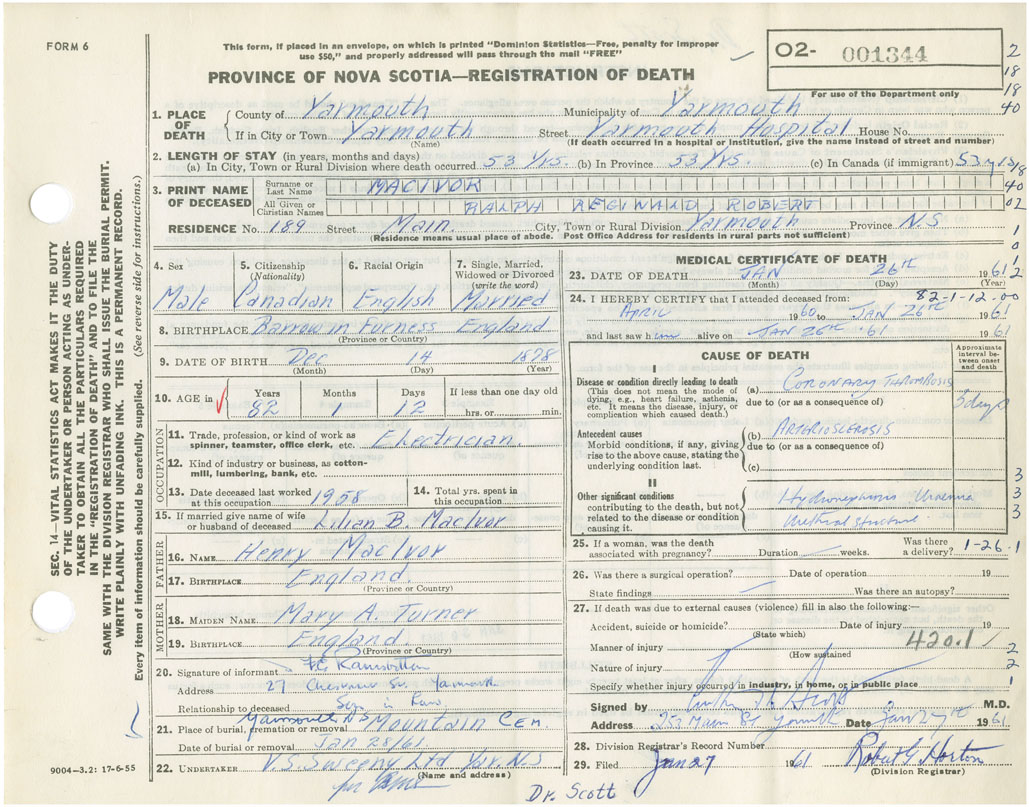 FORM 6
This form, if placed in an envelope, on which is printed "Dominion Statistics—Free, penalty for improper
use $50," and properly addressed will pass through the mail "FREE"
PROVINCE OF NOVA SCOTIA—REGISTRATION OF DEATH
O2- 001344
For use of the Department only
2
18
18
40
1. PLACE OF DEATH
County of Yarmouth Municipality of Yarmouth
If in City or Town Yarmouth Street Yarmouth Hospital House No.
(Name) (If death occurred in a hospital or institution, give the name instead of street and number)
2. LENGTH OF STAY (in years, months and days)
(a) In City, Town or Rural Division where death occurred 53 Yrs. (b) In Province 53 Yrs. (c) In Canada (if immigrant) 53
3. PRINT NAME OF DECEASED
Surname or Last Name MACIVOR
All Given or Christian Names RALPH REGINALD ROBERT
40
02
RESIDENCE No. 189 Street Main City, Town or Rural Division Yarmouth Province N.S
(Residence means usual place of abode. Post Office Address for residents in rural parts not sufficient)
4. Sex Male
5. Citizenship (Nationality) Canadian
6. Racial Origin English
7. Single, Married, Widowed or Divorced (write the word) Married
8. BIRTHPLACE Barrow in Furness England
(Province or Country)
9. DATE OF BIRTH Dec 14 1878
(Month) (Day) (Year)
10. AGE in Years 82 Months 1 Days 12 If less than one day old
hrs. or min.
OCCUPATION
11. Trade, profession, or kind of work as spinner, teamster, office clerk, etc. Electrician
12. Kind of industry or business, as cotton-mill, lumbering, bank, etc.
13. Date deceased last worked at this occupation 1958 14. Total yrs. spent in this occupation
15. If married give name of wife or husband of deceased Lilian B. MacIvor
FATHER
16. NAME Henry MacIvor
17. BIRTHPLACE England
(Province or Country)
MOTHER
18. MAIDEN NAME Mary A. Turner
19. BIRTHPLACE England
(Province or Country)
20. Signature of informant
Address 27 Yarmouth
Relationship to deceased Son in Law
21. Place of burial, cremation or removal Yarmouth NS Mountain Cem.
Date of burial or removal Jan 28/61
22. UNDERTAKER V.S. Sweeny Ltd Yar. N.S
(Name and address)
MEDICAL CERTIFICATE OF DEATH
23. DATE OF DEATH JAN 26TH 1961
(Month) (Day) (Year)
82-1-12-00
24. I HEREBY CERTIFY that I attended deceased from:
April 1960 to JAN 26TH 1961
and last saw him alive on JAN 26TH '61 1961
CAUSE OF DEATH
Approximate interval between onset and death
I
Disease or condition directly leading to death
(This does not mean the mode of dying, e.g., heart failure, asthenia, etc. It means the disease, injury, or complication which caused death.)
(a) CORONARY THROMBOSIS 3 days
due to (or as a consequence of)
Antecedent causes
Morbid conditions, if any, giving rise to the above cause, stating the underlying condition last.
(b) ARTERIOSCLEROSIS
due to (or as a consequence of)
(c)
II
Other significant conditions
contributing to the death, but not related to the disease or condition causing it.
Hydronephrosis Uraemia
Urethral stricture
3
3
3
25. If a woman, was the death associated with pregnancy? Duration weeks. Was there a delivery?
1-26.1
26. Was there a surgical operation? Date of operation 19
State findings Was there an autopsy?
27. If death was due to external causes (violence) fill in also the following:—
Accident, suicide or homicide? Date of injury 19
(State which)
420.1
Manner of injury
(How sustained)
Nature of injury
Specify whether injury occurred in industry, in home, or in public place
2
2
1
Signed by M.D.
Address 253 Main St Date Jan 27th 1961
28. Division Registrar's Record Number
29. Filed Jan 27 1961 Robert G. Horton
(Division Registrar)
Dr. Scott
9004—3.2: 17-6-55
SEC. 14—VITAL STATISTICS ACT MAKES IT THE DUTY
OF THE UNDERTAKER OR PERSON ACTING AS UNDER-
TAKER TO OBTAIN ALL THE PARTICULARS REQUIRED
IN THE "REGISTRATION OF DEATH" AND TO FILE THE
SAME WITH THE DIVISION REGISTRAR WHO SHALL ISSUE THE BURIAL PERMIT.
WRITE PLAINLY WITH UNFADING INK. THIS IS A PERMANENT RECORD.
Every item of information should be carefully supplied. (See reverse side for instructions.)